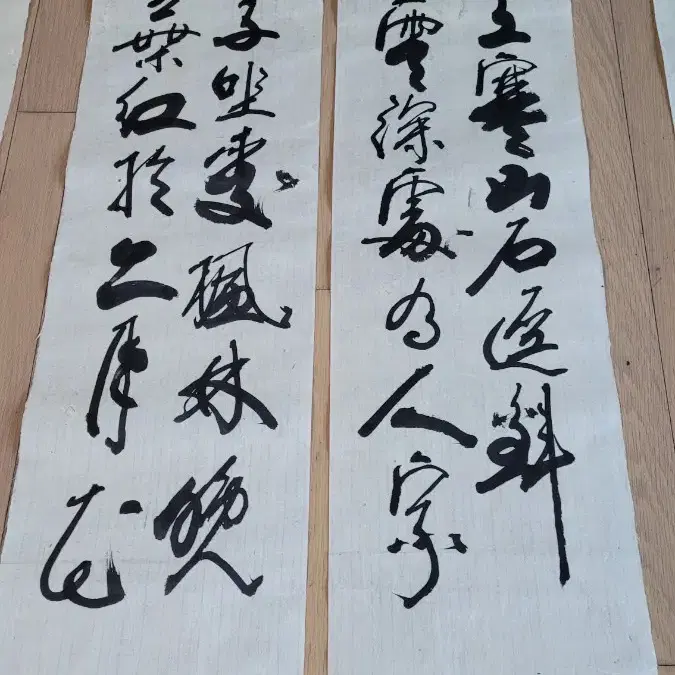 上寒山石逕斜
雲深處有人家
車坐愛楓林晚
葉紅於二月花